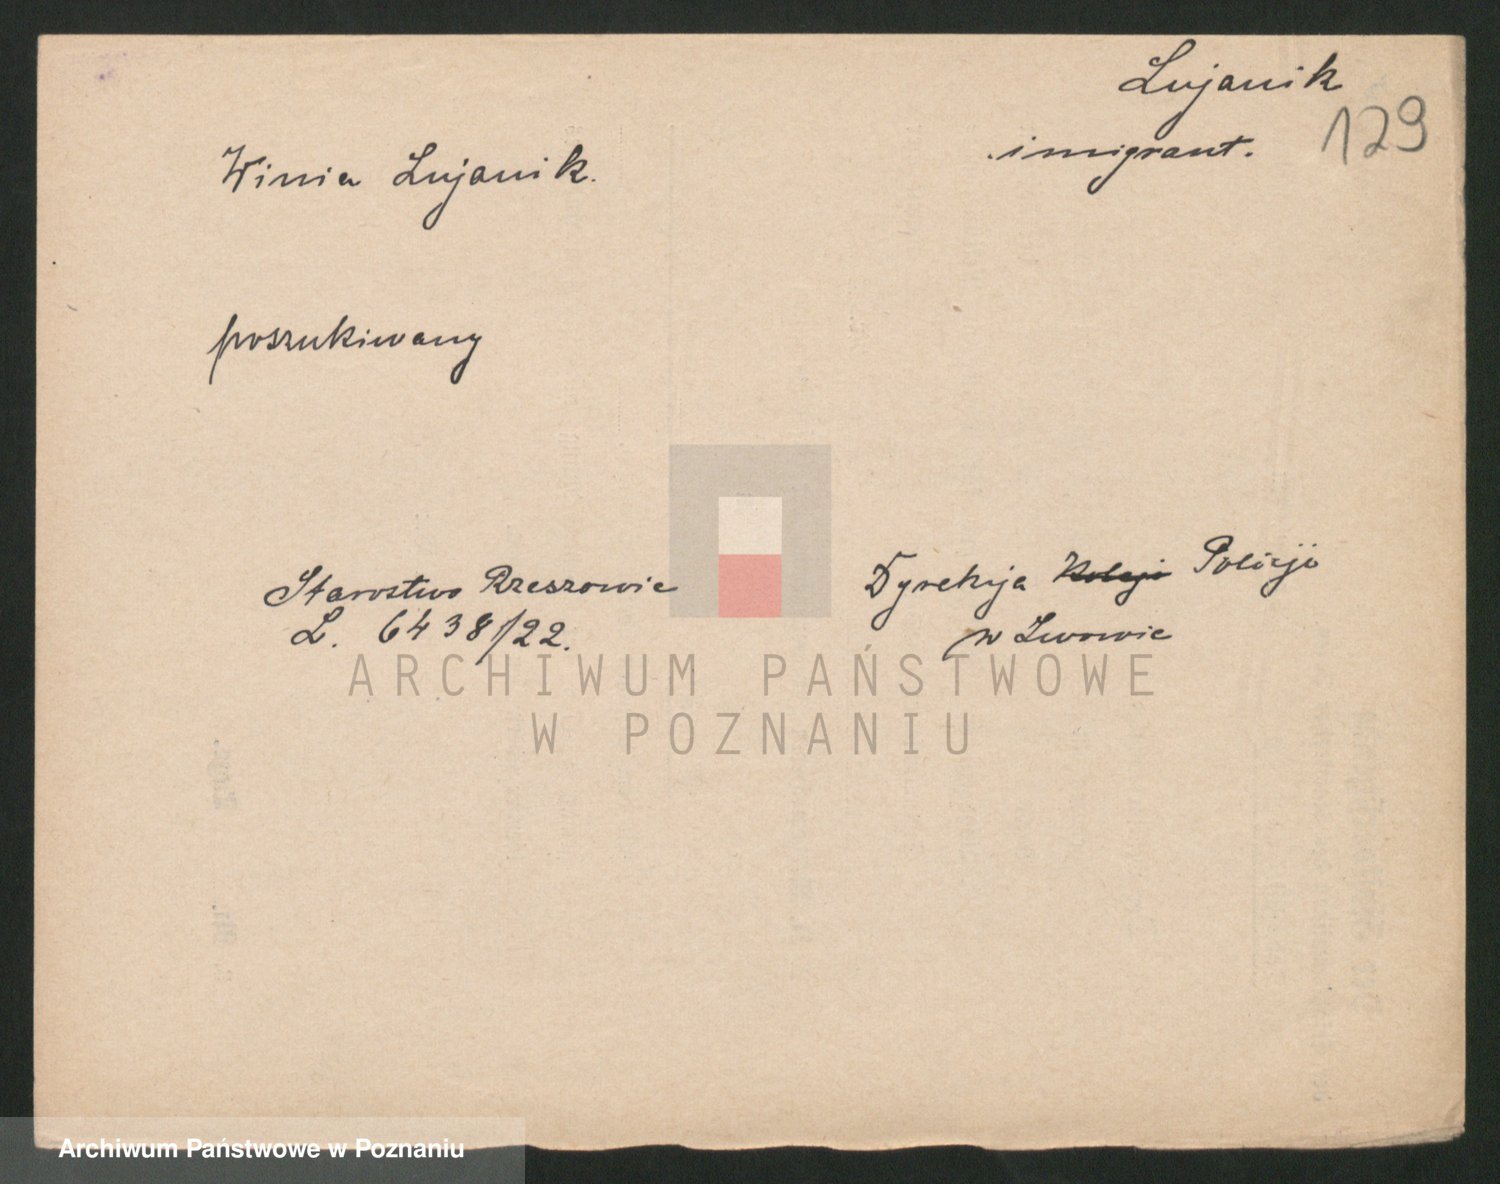 Lujanik
129
imigrant.
Winia Lujanik.
poszukiwany
Starostwo Rzeszowie
L. 6438/22.
Dyrekcja Koleji Policji
w Lwowie
ARCHIWUM PAŃSTWOWE
W POZNANIU
Archiwum Państwowe w Poznaniu